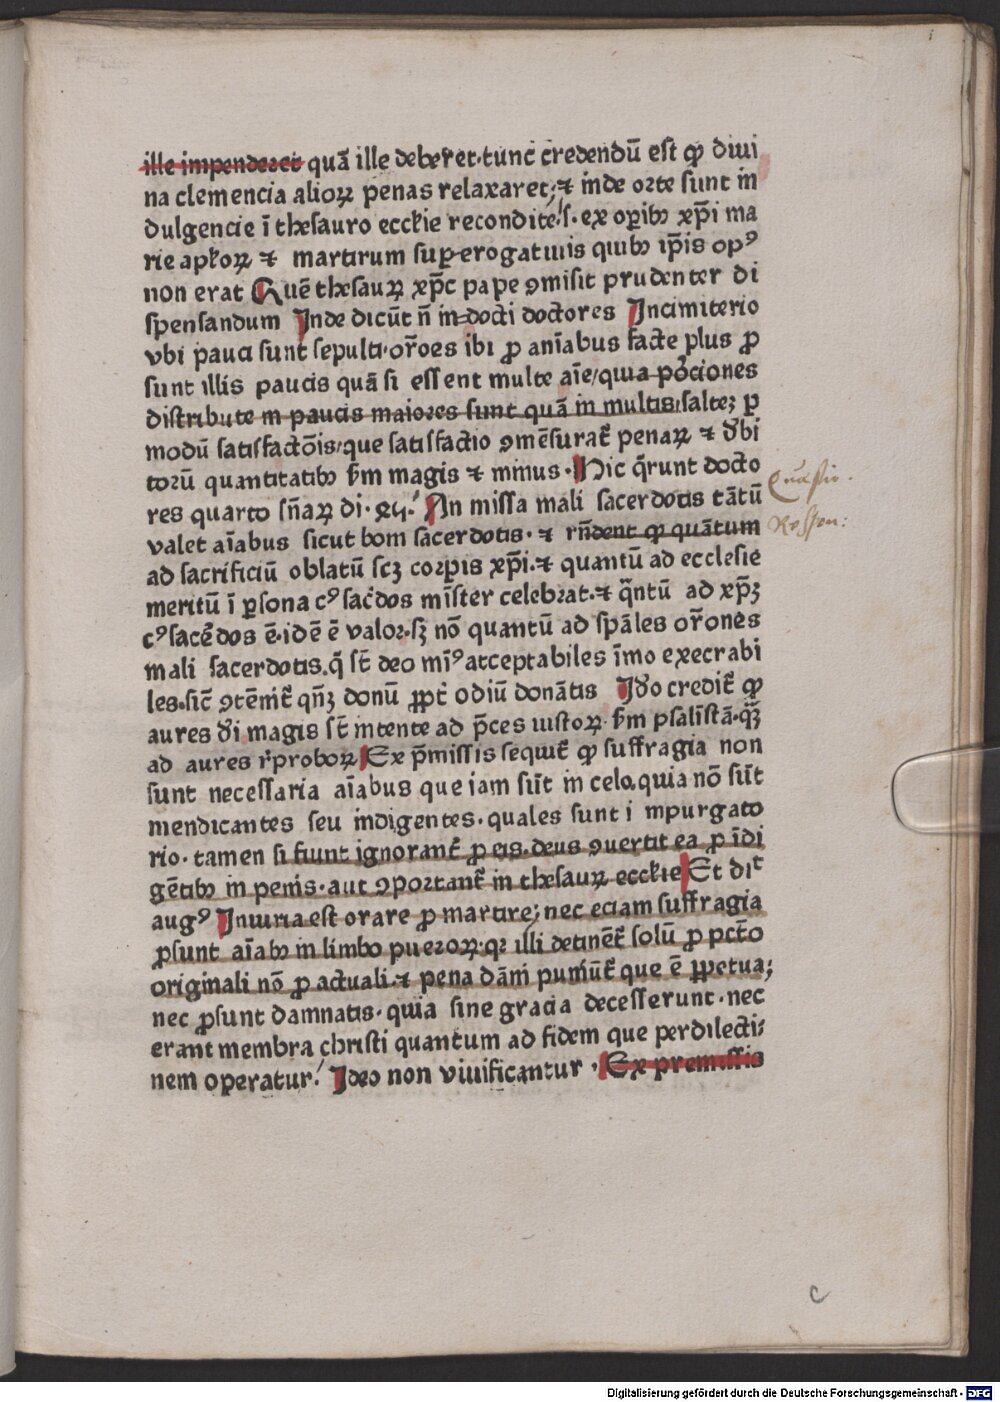 ille impenderet quā ille deberet·tunc credendū est ꝙ diui
na clemencia alioꝝ penas relaxaret;⁊ inde orte sunt in
dulgencie ī thesauro ecclie recondite/s·ex oꝑibꝫ xp̄i ma
rie aplꝝ ⁊ martirum suꝑerogatiuis quibꝫ ip̄is opꝰ
non erat Quē thesauꝝ xp̄c pape ꝯmisit prudenter di
spensandum Inde dicūt n̄ in=docti doctores Incimiterio
vbi pauci sunt sepulti·or̄oes ibi ꝓ anīabus facte plus ꝓ
sunt illis paucis quā si essent multe aīe/quia porciones
distribute in paucis maiores sunt quā in multis/salteꝫ ꝑ
modū satisfactōis/que satisfactio ꝯmēsurat penaꝝ ⁊ dbi
torū quantitatibꝫ ẜm magis ⁊ minus·Hic q̄runt docto
res quarto sn̄aꝝ di·xlv· An missa mali sacerdotis tātū
valet aīabus sicut boni sacerdotis·⁊ rn̄dent ꝙ quātum
ad sacrificiū oblatū scꝫ corꝑis xp̄i·⁊ quantū ad ecclesie
meritū ī ꝑsona cꝰ sacdos mīster celebrat·⁊ q̄ntū ad xp̄ꝫ
cꝰ sacedos ē·idē ē valor·sꝫ nō quantū ad sp̄ales or̄ones
mali sacerdotis·q̄ st̄ deo miꝰ acceptabiles īmo execrabi
les·sic̄ ꝯtēnit qn̄ꝫ donū ꝓpt odiū donātis Ido credit ꝙ
aures di magis st̄ intente ad p̄ces iustoꝝ ẜm psalīstā·q̄ꝫ
ad aures r̄proboꝝ Ex p̄missis sequit ꝙ suffragia non
sunt necessaria aīabus que iam sūt in celo·quia nō sūt
mendicantes seu indigentes·quales sunt i mpurgato
rio·tamen si fiunt ignorant ꝓ eis·deus ꝯuertit ea ꝓ īdi
gētibꝫ in penis·aut ꝯportant in thesauꝝ ecclie Et dit
augꝰ Iniuria est orare ꝓ martire; nec eciam suffragia
ꝓsunt aīabꝫ in limbo pueroꝝ·qꝛ illi detinēt solū ꝓ pcto
originali nō ꝓ actuali·⁊ pena dāni puniūt que ē ꝑpetua;
nec ꝓsunt damnatis·quia sine gracia decesserunt·nec
erant membra christi quantum ad fidem que per dilecti/
nem operatur/ Ideo non viuificantur · Ex premissis
Quæstio·
Respon:
c
Digitalisierung gefördert durch die Deutsche Forschungsgemeinschaft - DFG